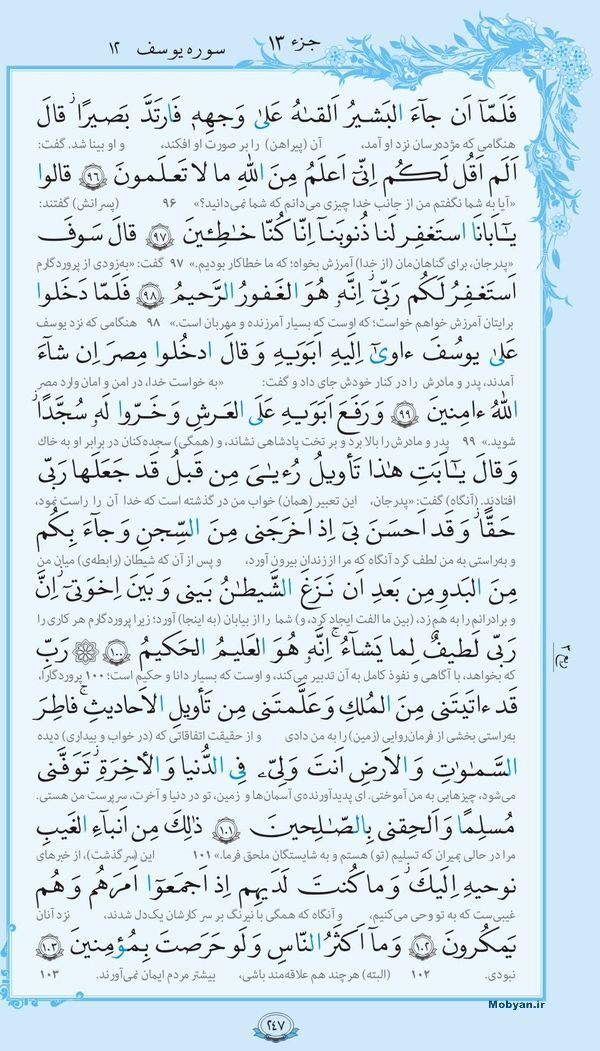 جزء ۱۳
سوره یوسف ۱۲
فَلَمّا اَن جاءَ البَشیرُ اَلقىٰهُ عَلىٰ وَجهِهٖ فَارتَدَّ بَصیرًا ۖ قالَ
هنگامی که مژده‌رسان نزد او آمد، آن (پیراهن) را بر صورت او افکند، و او بینا شد. گفت:
اَلَم اَقُل لَكُم اِنّی اَعلَمُ مِنَ اللّٰهِ ما لا تَعلَمونَ ﴿۹۶﴾ قالوا
«آیا به شما نگفتم من از جانب خدا چیزی می‌دانم که شما نمی‌دانید؟» ۹۶ (پسرانش) گفتند:
یٰاَبانَا استَغفِر لَنا ذُنوبَنا اِنّا كُنّا خٰطِئینَ ﴿۹۷﴾ قالَ سَوفَ
«پدرجان، برای گناهان‌مان (از خدا) آمرزش بخواه؛ که ما خطاکار بودیم.» ۹۷ گفت: «به‌زودی از پروردگارم
اَستَغفِرُ لَكُم رَبّی ۖ اِنَّهٗ هُوَ الغَفورُ الرَّحیمُ ﴿۹۸﴾ فَلَمّا دَخَلوا
برایتان آمرزش خواهم خواست؛ که اوست که بسیار آمرزنده و مهربان است.» ۹۸ هنگامی که نزد یوسف
عَلىٰ یوسُفَ ءاوىٰ اِلَیهِ اَبَوَیهِ وَ قالَ ادخُلوا مِصرَ اِن شاءَ
آمدند، پدر و مادرش را در کنار خودش جای داد و گفت: «به خواست خدا، در امن و امان وارد مصر
اللّٰهُ ءامِنینَ ﴿۹۹﴾ وَ رَفَعَ اَبَوَیهِ عَلَى العَرشِ وَ خَرّوا لَهٗ سُجَّدًا ۖ
شوید.» ۹۹ پدر و مادرش را بالا برد و بر تخت پادشاهی نشاند، و (همگی) سجده‌کنان در برابر او به خاك
وَ قالَ یٰاَبَتِ هٰذا تَأویلُ رُءیٰیَ مِن قَبلُ قَد جَعَلَها رَبّی
افتادند. (آنگاه) گفت: «پدرجان، این تعبیر (همان) خواب من در گذشته است که خدا آن را راست نمود،
حَقًّا ۖ وَ قَد اَحسَنَ بی اِذ اَخرَجَنی مِنَ السِّجنِ وَ جاءَ بِكُم
و به‌راستی به من لطف کرد آنگاه که مرا از زندان بیرون آورد، و پس از آن که شیطان (رابطه‌ی) میان من
مِنَ البَدوِ مِن بَعدِ اَن نَزَغَ الشَّیطٰنُ بَینی وَ بَینَ اِخوَتی ۚ اِنَّ
و برادرانم را به هم زد، (بین ما الفت ایجاد کرد، و) شما را از بیابان (به اینجا) آورد؛ زیرا پروردگارم هر کاری را
رَبّی لَطیفٌ لِما یَشاءُ ۚ اِنَّهٗ هُوَ العَلیمُ الحَكیمُ ﴿۱۰۰﴾ رَبِّ
که بخواهد، با آگاهی و نفوذ کامل به آن تدبیر می‌کند، و اوست که بسیار دانا و حکیم است؛ ۱۰۰ پروردگارا،
قَد ءاتَیتَنی مِنَ المُلكِ وَ عَلَّمتَنی مِن تَأویلِ الاَحادیثِ ۚ فاطِرَ
به‌راستی بخشی از فرمان‌روایی (زمین) را به من دادی و از حقیقت اتفاقاتی که (در خواب و بیداری) دیده
السَّمٰوٰتِ وَ الاَرضِ اَنتَ وَلِیّی فِی الدُّنیا وَ الآخِرَةِ ۖ تَوَفَّنی
می‌شود، چیزهایی به من آموختی. ای پدیدآورنده‌ی آسمان‌ها و زمین، تو در دنیا و آخرت، سرپرست من هستی.
مُسلِمًا وَ اَلحِقنی بِالصّٰلِحینَ ﴿۱۰۱﴾ ذٰلِكَ مِن اَنباءِ الغَیبِ
مرا در حالی بمیران که تسلیم (تو) هستم و به شایستگان ملحق فرما.» ۱۰۱ این (سرگذشت)، از خبرهای
نوحیهِ اِلَیكَ ۖ وَ ما كُنتَ لَدَیهِم اِذ اَجمَعوا اَمرَهُم وَ هُم
غیبی‌ست که به تو وحی می‌کنیم، و آنگاه که همگی با نیرنگ بر سر کارشان یک‌دل شدند، نزد آنان
یَمكُرونَ ﴿۱۰۲﴾ وَ ما اَكثَرُ النّاسِ وَ لَو حَرَصتَ بِمُؤمِنینَ ﴿۱۰۳﴾
نبودی. ۱۰۲ (البته) هرچند هم علاقه‌مند باشی، بیشتر مردم ایمان نمی‌آورند. ۱۰۳
۲۴۷
Mobyan.ir